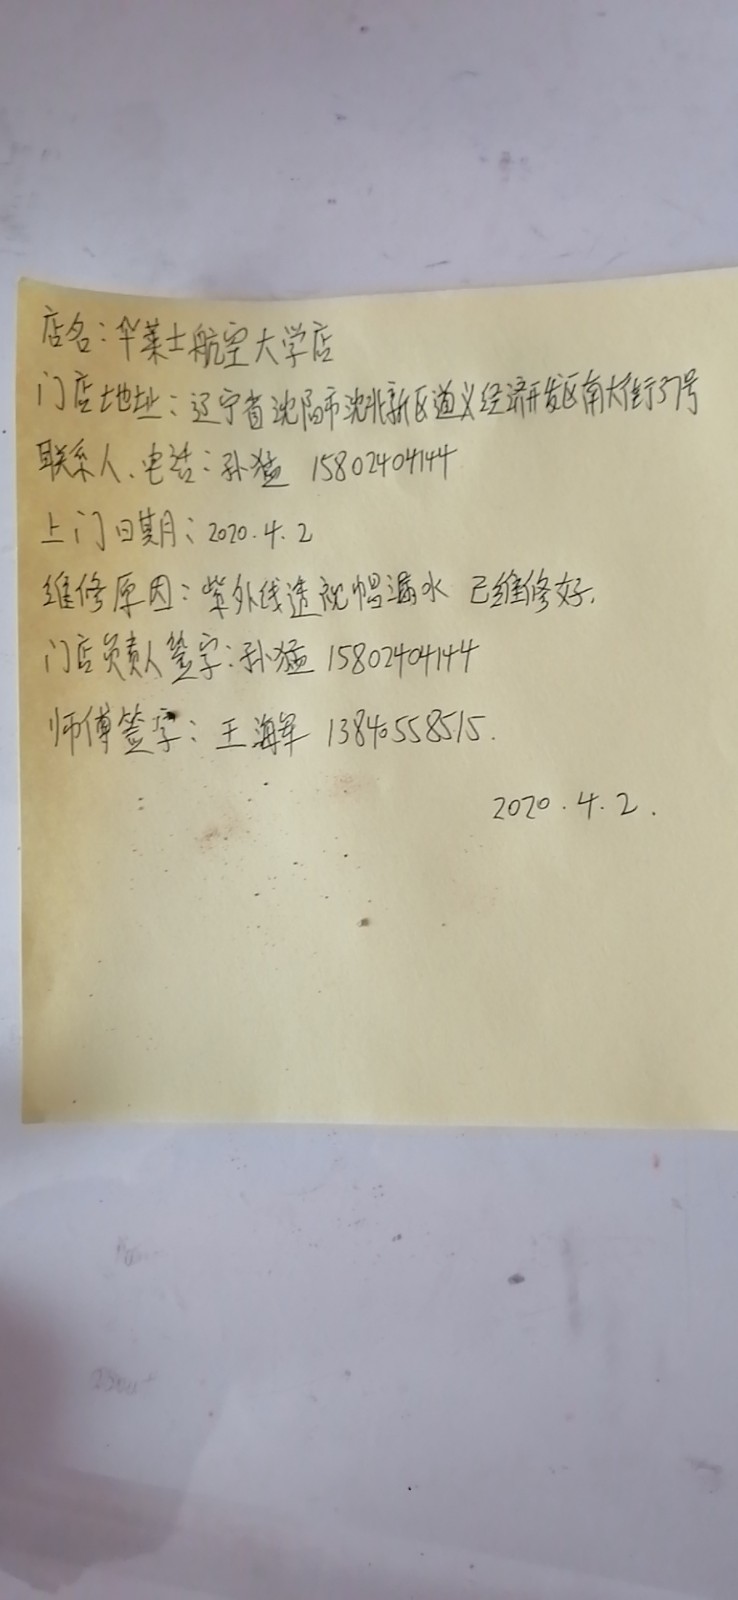 店名：华莱士航空大学店
门店地址：辽宁省沈阳市沈北新区道义经济开发区南大街37号
联系人、电话：孙猛 15802404144
上门日期：2020.4.2
维修原因：紫外线透视帽漏水 已维修好.
门店负责人签字：孙猛 15802404144
师傅签字：王海军 13840558515.
2020.4.2.